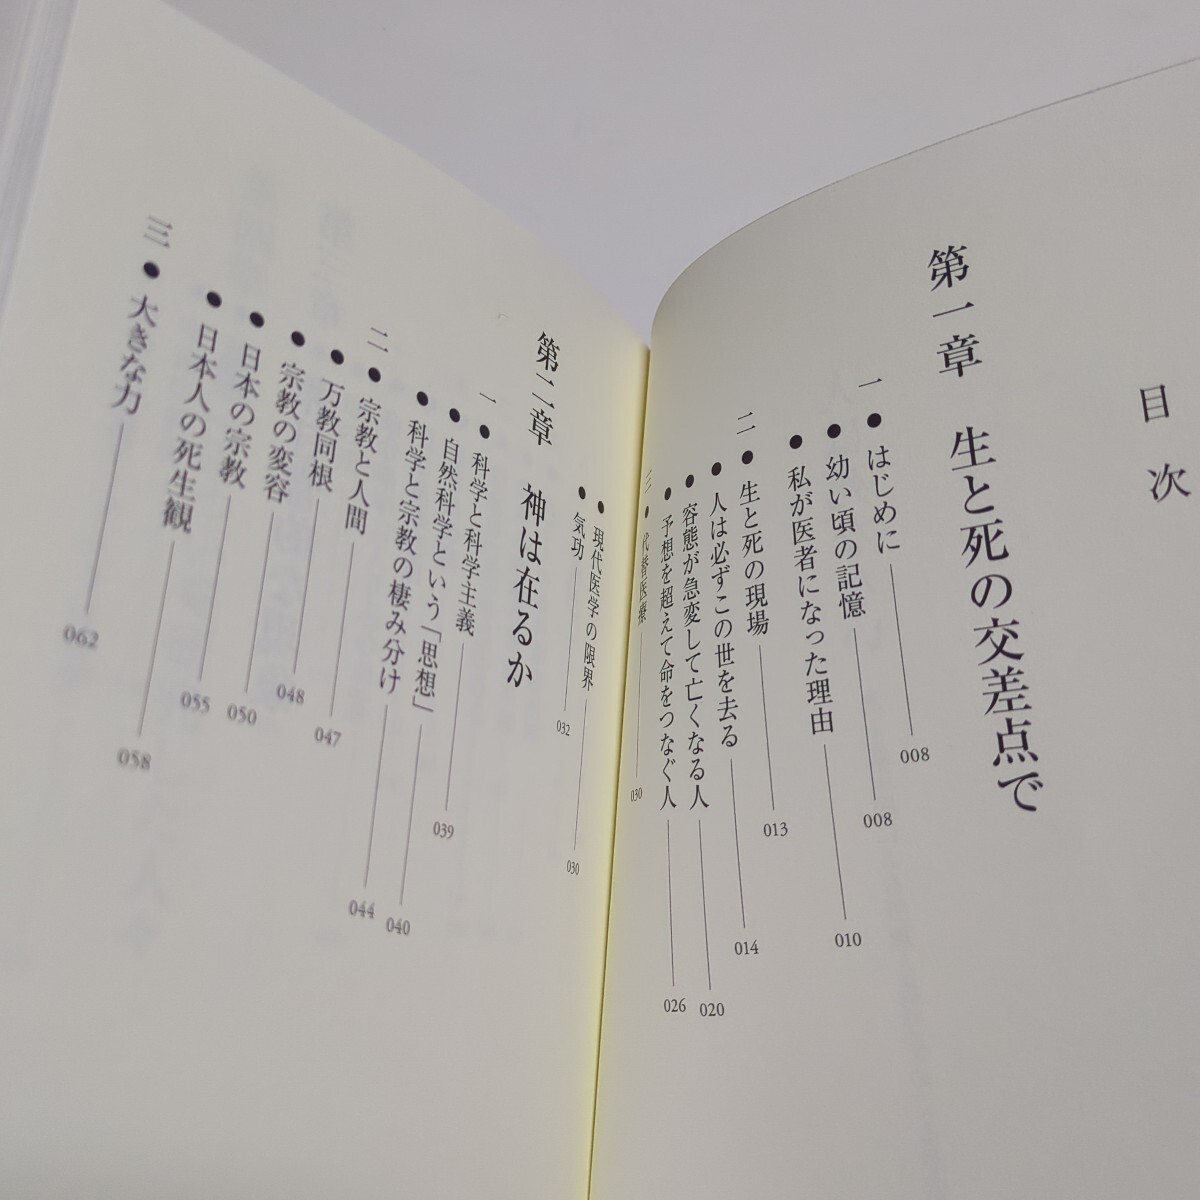 目次
第一章　生と死の交差点で
一 ● はじめに 008
● 幼い頃の記憶 008
● 私が医者になった理由 010
二 ● 生と死の現場 013
● 人は必ずこの世を去る 014
● 容態が急変して亡くなる人 020
● 予想を超えて命をつなぐ人 026
三 ● 代替医療 030
● 現代医学の限界 030
● 気功 032
第二章　神は在るか
一 ● 科学と科学主義 039
● 自然科学という「思想」 040
● 科学と宗教の棲み分け 044
二 ● 宗教と人間 047
● 万教同根 048
● 宗教の変容 050
● 日本の宗教 055
● 日本人の死生観 058
三 ● 大きな力 062